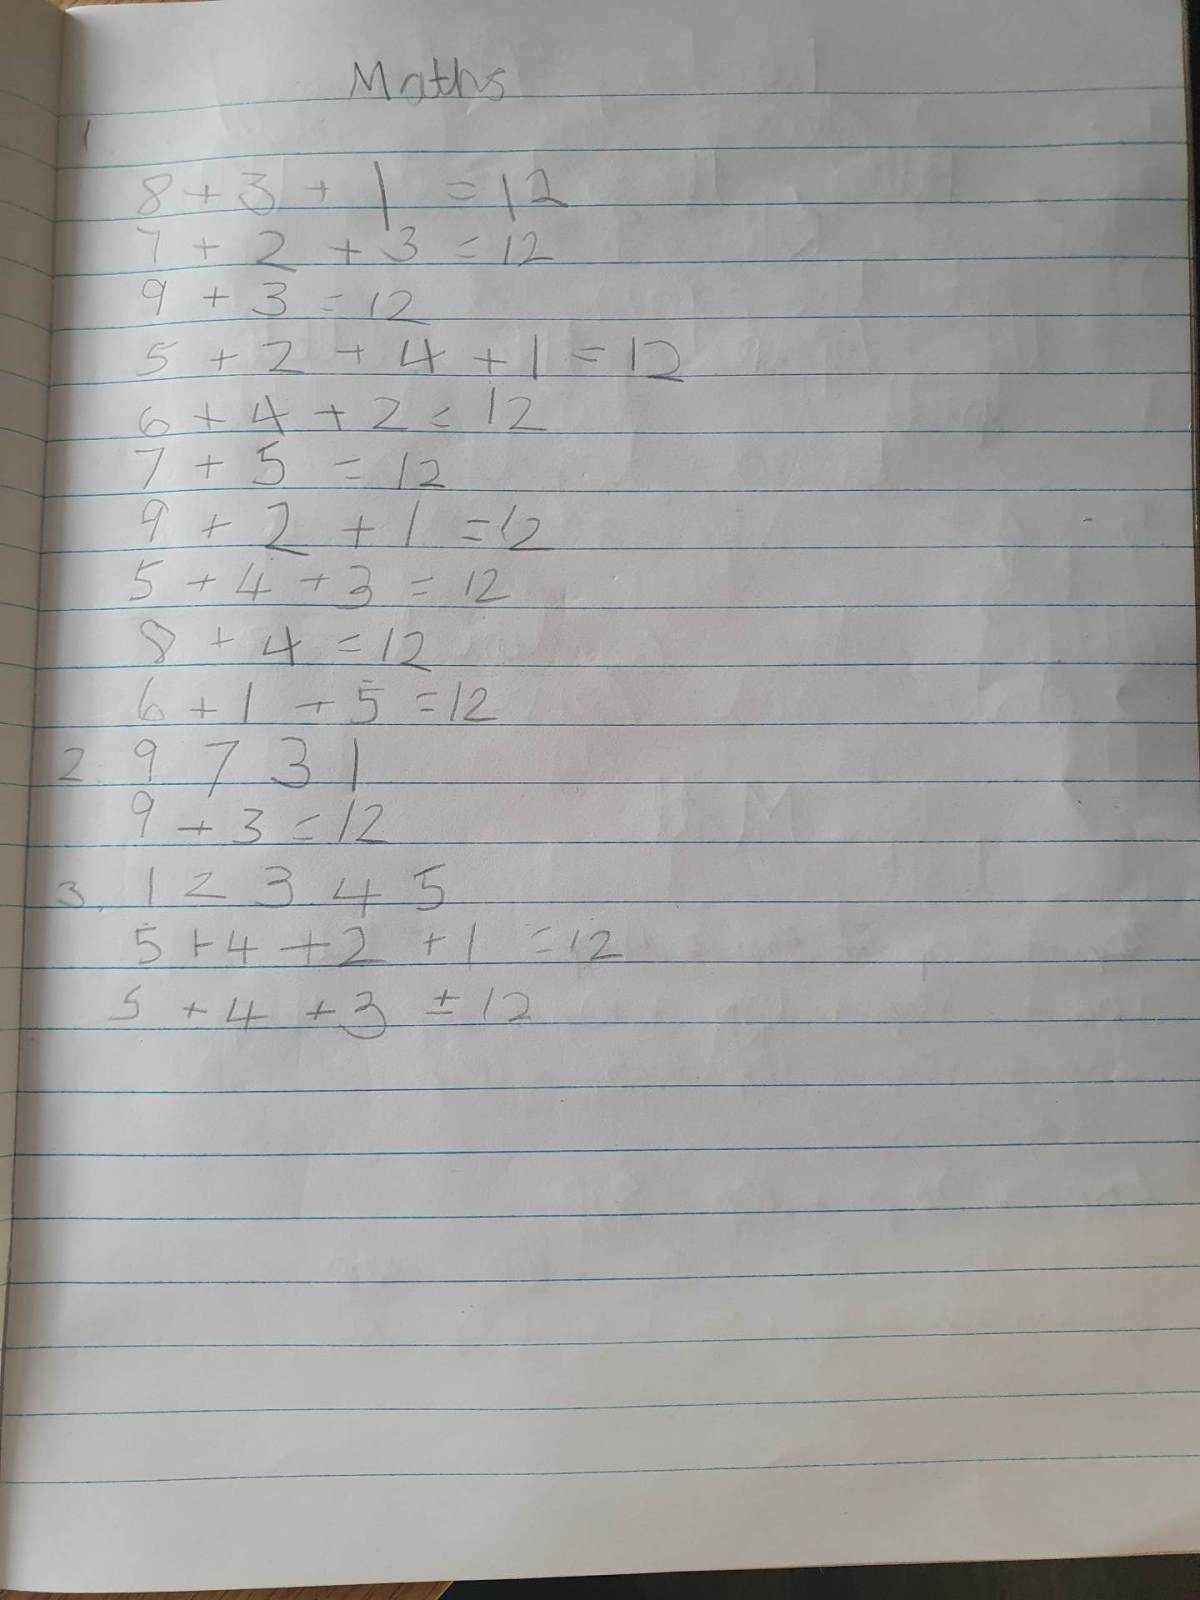 Maths
1
8 + 3 + 1 = 12
7 + 2 + 3 = 12
9 + 3 = 12
5 + 2 + 4 + 1 = 12
6 + 4 + 2 = 12
7 + 5 = 12
9 + 2 + 1 = 12
5 + 4 + 3 = 12
8 + 4 = 12
6 + 1 + 5 = 12
2 9 7 3 1
9 + 3 = 12
3. 1 2 3 4 5
5 + 4 + 2 + 1 = 12
5 + 4 + 3 ± 12